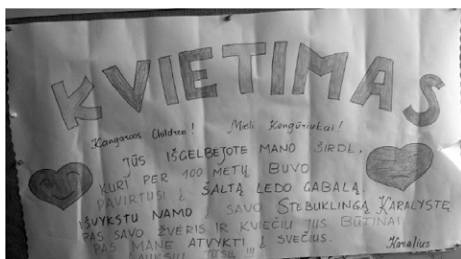 KVIETIMAS
Kangaroos Children! Mieli Kengūriukai!
JŪS IŠGELBĖJOTE MANO ŠIRDĮ,
KURI PER 100 METŲ BUVO
PAVIRTUSI Į ŠALTĄ LEDO GABALĄ.
IŠVYKSTU NAMO Į SAVO STEBUKLINGĄ KARALYSTĘ
PAS SAVO ŽVĖRIS IR KVIEČIU JUS BŪTINAI
PAS MANE ATVYKTI Į SVEČIUS.
LAUKSIU JŪSŲ !!!
Karalius